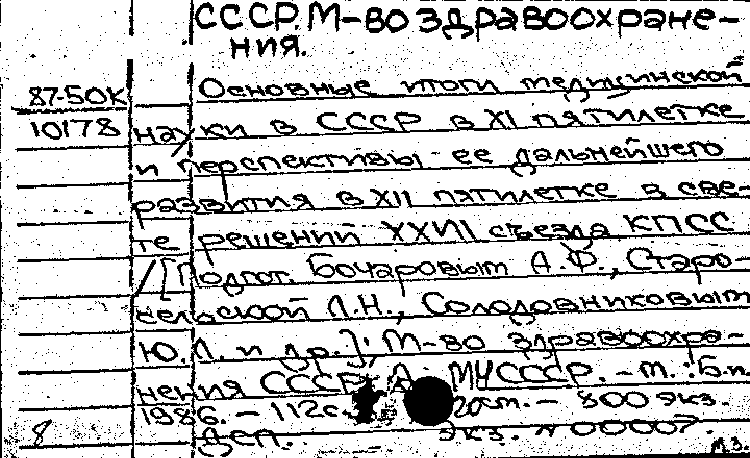 СССР. М-во здравоохране-
ния.
Основные итоги медицинской
87-50К
10178
науки в СССР в XI пятилетке
и перспективы ее дальнейшего
развития в XII пятилетке в све-
те решений XXVII съезда КПСС
/[Подгот. Бочаровым А.Ф., Старо-
сельской Л.Н., Солодовниковым
Ю.Л. и др.]; М-во здравоохра-
нения СССР, А МН СССР. - М. : Б.и.
1986. - 112с. 20см. - 800 экз.
8 Дсп. Экз. N 00007.